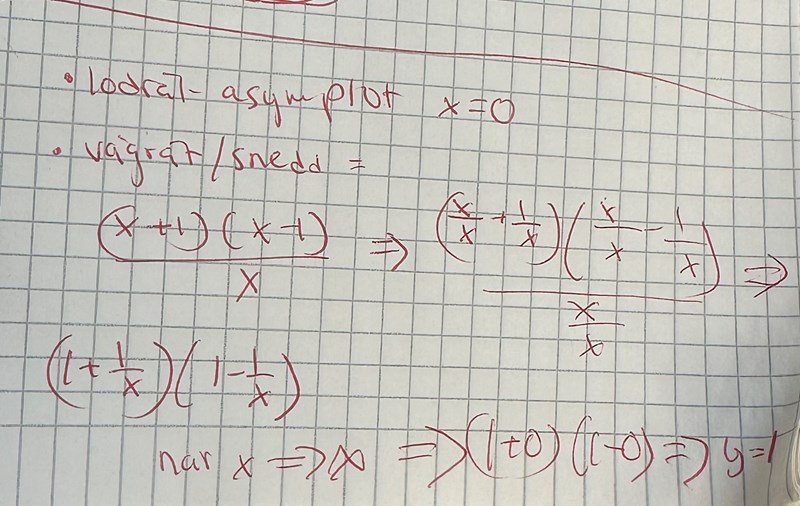 • lodrät- asymptot x=0
• vågrät/snedd =
(x+1)(x-1)/x ⇒ (x/x + 1/x)(x/x - 1/x)/(x/x) ⇒
(1+1/x)(1-1/x)
när x ⇒ ∞ ⇒ (1+0)(1-0) ⇒ y=1